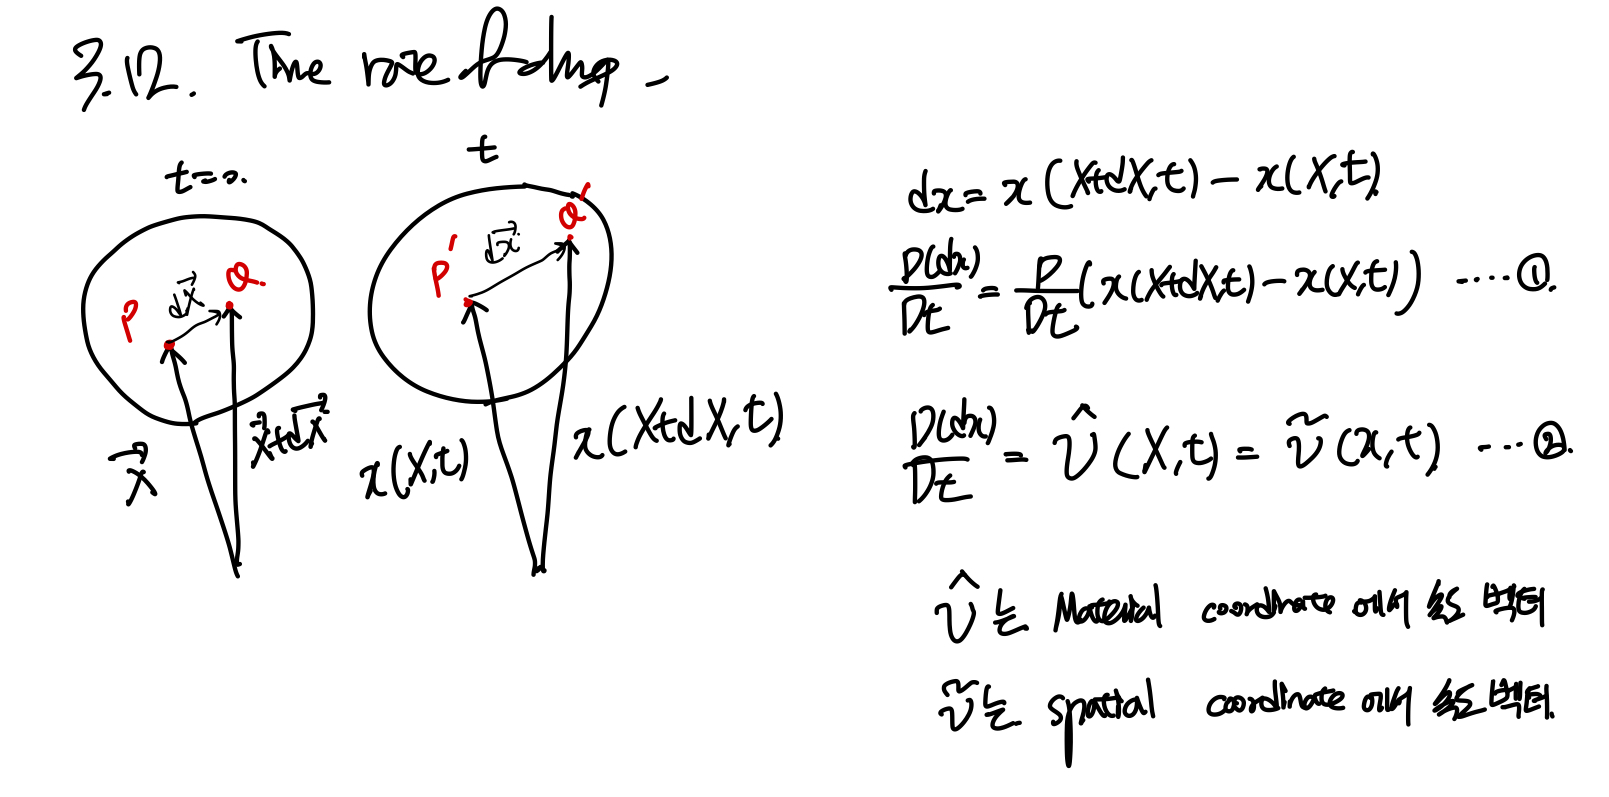 3.12. Time rate of change.
t=0.
t
P
dX
Q
P'
dx
Q'
X
X+dX
x(X,t)
x(X+dX,t)
dx = x(X+dX,t) - x(X,t)
D(dx)/Dt = D/Dt (x(X+dX,t) - x(X,t)) ..... ①.
D(dx)/Dt = v̂(X,t) = ṽ(x,t) ... ②.
v̂는 Material coordinate 에서 속도 벡터
ṽ는 spatial coordinate 에서 속도 벡터.